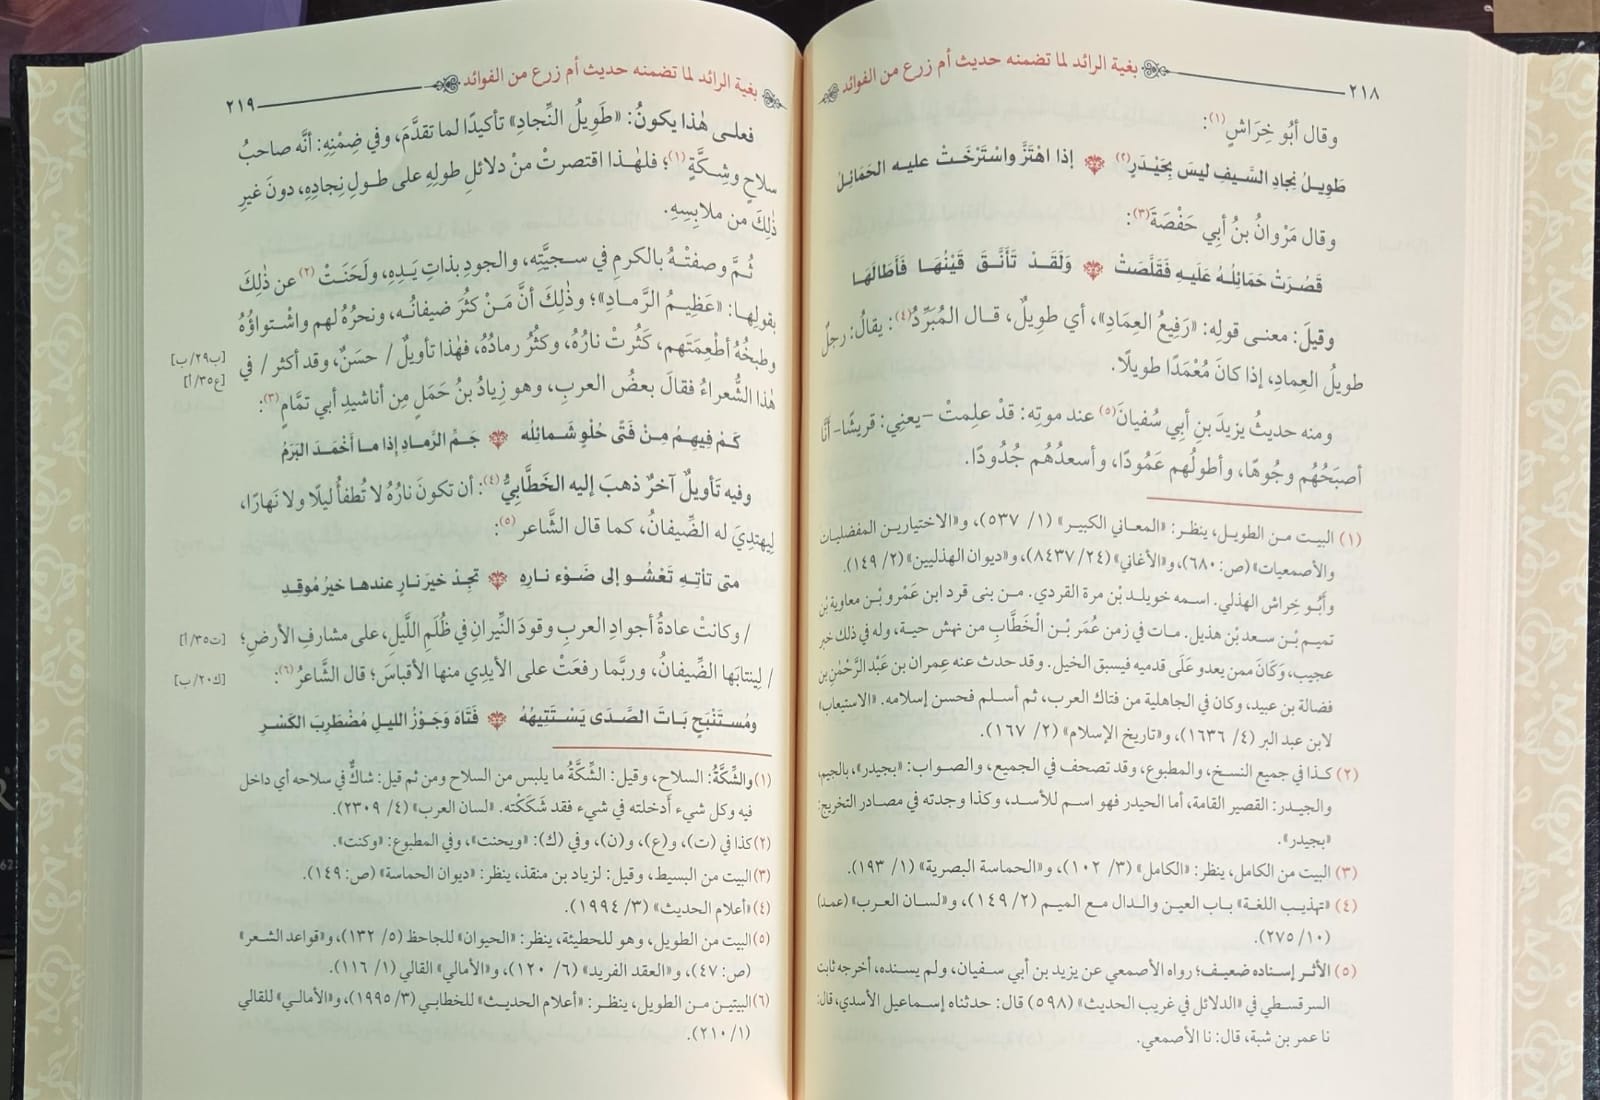 بغية الرائد لما تضمنه حديث أم زرع من الفوائد
٢١٨
وقال أبُو خِرَاشٍ(١):
طَوِيلُ نِجَادِ السَّيفِ ليسَ بِحَيْدَرٍ(٢) إذا اهْتَزَّ واسْتَرْخَتْ عليه الحَمَائِلُ
وقال مَرْوانُ بنُ أبِي حَفْصَةَ(٣):
قَصُرَتْ حَمَائِلُهُ عَلَيهِ فَقَلَّصَتْ وَلَقَدْ تَأَنَّقَ قَيْنُهَا فَأَطَالَهَا
وقيلَ: معنى قوله: «رَفِيعُ العِمَادِ»، أي طوِيلٌ، قال المُبَرِّدُ(٤): يقالُ: رجلٌ
طويلُ العِمادِ، إذا كانَ مُعْمَدًا طويلًا.
ومنه حديثُ يزيدَ بنِ أبِي سُفيانَ(٥) عند موتِه: قدْ علِمتْ –يعنِي: قريشًا– أنَّا
أصبَحُهُم وجُوهًا، وأطولُهم عَمُودًا، وأسعدُهُم جُدُودًا.
(١) البيت من الطويل، ينظر: «المعاني الكبير» (١/ ٥٣٧)، و«الاختيارين المفضليات
والأصمعيات» (ص: ٦٨٠)، و«الأغاني» (٢٤/ ٨٤٣٧)، و«ديوان الهذليين» (٢/ ١٤٩).
وأَبُو خِراش الهذلي. اسمه خويلد بْن مرة القردي. من بنى قرد ابن عَمْرو بْن معاوية بْن
تميم بْن سعد بْن هذيل. مات في زمن عُمَر بْن الْخَطَّابِ من نهش حية، وله في ذلك خبر
عجيب، وَكَانَ ممن يعدو عَلَى قدميه فيسبق الخيل. وقد حدث عنه عِمران بن عَبْد الرَّحْمٰنِ بن
فضالة بن عبيد، وكان في الجاهلية من فتاك العرب، ثم أسلم فحسن إسلامه. «الاستيعاب»
لابن عبد البر (٤/ ١٦٣٦)، و«تاريخ الإسلام» (٢/ ١٦٧).
(٢) كذا في جميع النسخ، والمطبوع، وقد تصحف في الجميع، والصواب: «بجيدر»، بالجيم،
والجيدر: القصير القامة، أما الحيدر فهو اسم للأسد، وكذا وجدته في مصادر التخريج:
«بجيدر».
(٣) البيت من الكامل، ينظر: «الكامل» (٣/ ١٠٢)، و«الحماسة البصرية» (١/ ١٩٣).
(٤) «تهذيب اللغة» باب العين والدال مع الميم (٢/ ١٤٩)، و«لسان العرب» (عمد)
(١٠/ ٢٧٥).
(٥) الأثر إسناده ضعيف؛ رواه الأصمعي عن يزيد بن أبي سفيان، ولم يسنده، أخرجه ثابت
السرقسطي في «الدلائل في غريب الحديث» (٥٩٨) قال: حدثناه إسماعيل الأسدي، قال:
نا عمر بن شبة، قال: نا الأصمعي.
بغية الرائد لما تضمنه حديث أم زرع من الفوائد
٢١٩
فعلى هٰذا يكونُ: «طَوِيلُ النِّجادِ» تأكيدًا لما تقدَّمَ، وفي ضِمْنِهِ: أنَّه صاحبُ
سلاحٍ وشِكَّةٍ(١)؛ فلهٰذا اقتصرتْ منْ دلائلِ طولِهِ على طولِ نِجادِهِ، دونَ غيرِ
ذٰلِكَ من ملابِسِهِ.
ثُمَّ وصفتْهُ بالكرمِ في سجيَّتِه، والجودِ بذاتِ يَدِهِ، ولَحَنَتْ(٢) عن ذٰلِكَ
بقولِها: «عَظِيمُ الرَّمادِ»؛ وذٰلِكَ أنَّ مَنْ كثُرَ ضيفانُه، ونحرُهُ لهم واشْتواؤُهُ
وطبخُهُ أطْعِمَتَهم، كَثُرتْ نارُهُ، وكثُرُ رمادُهُ، فهٰذا تأويلٌ / حسَنٌ، وقد أكثر / في
[ب٢٩/ب]
[ع٣٥/أ]
هٰذا الشُّعراءُ فقالَ بعضُ العربِ، وهو زيادُ بنُ حَمَلٍ مِن أناشيدِ أبي تمَّامٍ(٣):
كَمْ فِيهِمُ مِنْ فَتًى حُلْوٍ شَمائِلُه جَمُّ الرَّمادِ إذا ما أَخْمَدَ البَرَمُ
وفيه تَأويلٌ آخرُ ذهبَ إليه الخَطَّابِيُّ(٤): أن تكونَ نارُهُ لا تُطفأُ ليلًا ولا نَهارًا،
لِيهتدِيَ له الضِّيفانُ، كما قال الشَّاعر(٥):
متى تأتهِ تَعْشُو إلى ضَوْء نارِهِ تجِدْ خيرَ نارٍ عندها خيرُ مُوقِدِ
/ وكانتْ عادةُ أجوادِ العربِ وقودَ النِّيرانِ في ظُلَمِ اللَّيلِ، على مشارفِ الأرضِ؛
[ت٣٥/أ]
/ لِينتابَها الضِّيفانُ، وربَّما رفعَتْ على الأيدِي منها الأقباسَ؛ قال الشَّاعرُ(٦):
[ك٢٠/ب]
ومُستَنْبَحٍ بَاتَ الصَّدَى يَسْتَتِيهُهُ فَتَاهَ وَجَوْزُ الليلِ مُضْطَرِبَ الكَسْرِ
(١) والشِّكَّةُ: السلاح، وقيل: الشِّكَّةُ ما يلبس من السلاح ومن ثم قيل: شاكٌّ في سلاحه أي داخل
فيه وكل شيء أَدخلته في شيء فقد شَكَكْته. «لسان العرب» (٤/ ٢٣٠٩).
(٢) كذا في (ت)، و(ع)، و(ن)، وفي (ك): «ويحنت»، وفي المطبوع: «وكنت».
(٣) البيت من البسيط، وقيل: لزياد بن منقذ، ينظر: «ديوان الحماسة» (ص: ١٤٩).
(٤) «أعلام الحديث» (٣/ ١٩٩٤).
(٥) البيت من الطويل، وهو للحطيئة، ينظر: «الحيوان» للجاحظ (٥/ ١٣٢)، و«قواعد الشعر»
(ص: ٤٧)، و«العقد الفريد» (٦/ ١٢٠)، و«الأمالي» القالي (١/ ١١٦).
(٦) البيتين من الطويل، ينظر: «أعلام الحديث» للخطابي (٣/ ١٩٩٥)، و«الأمالي» للقالي
(١/ ٢١٠).